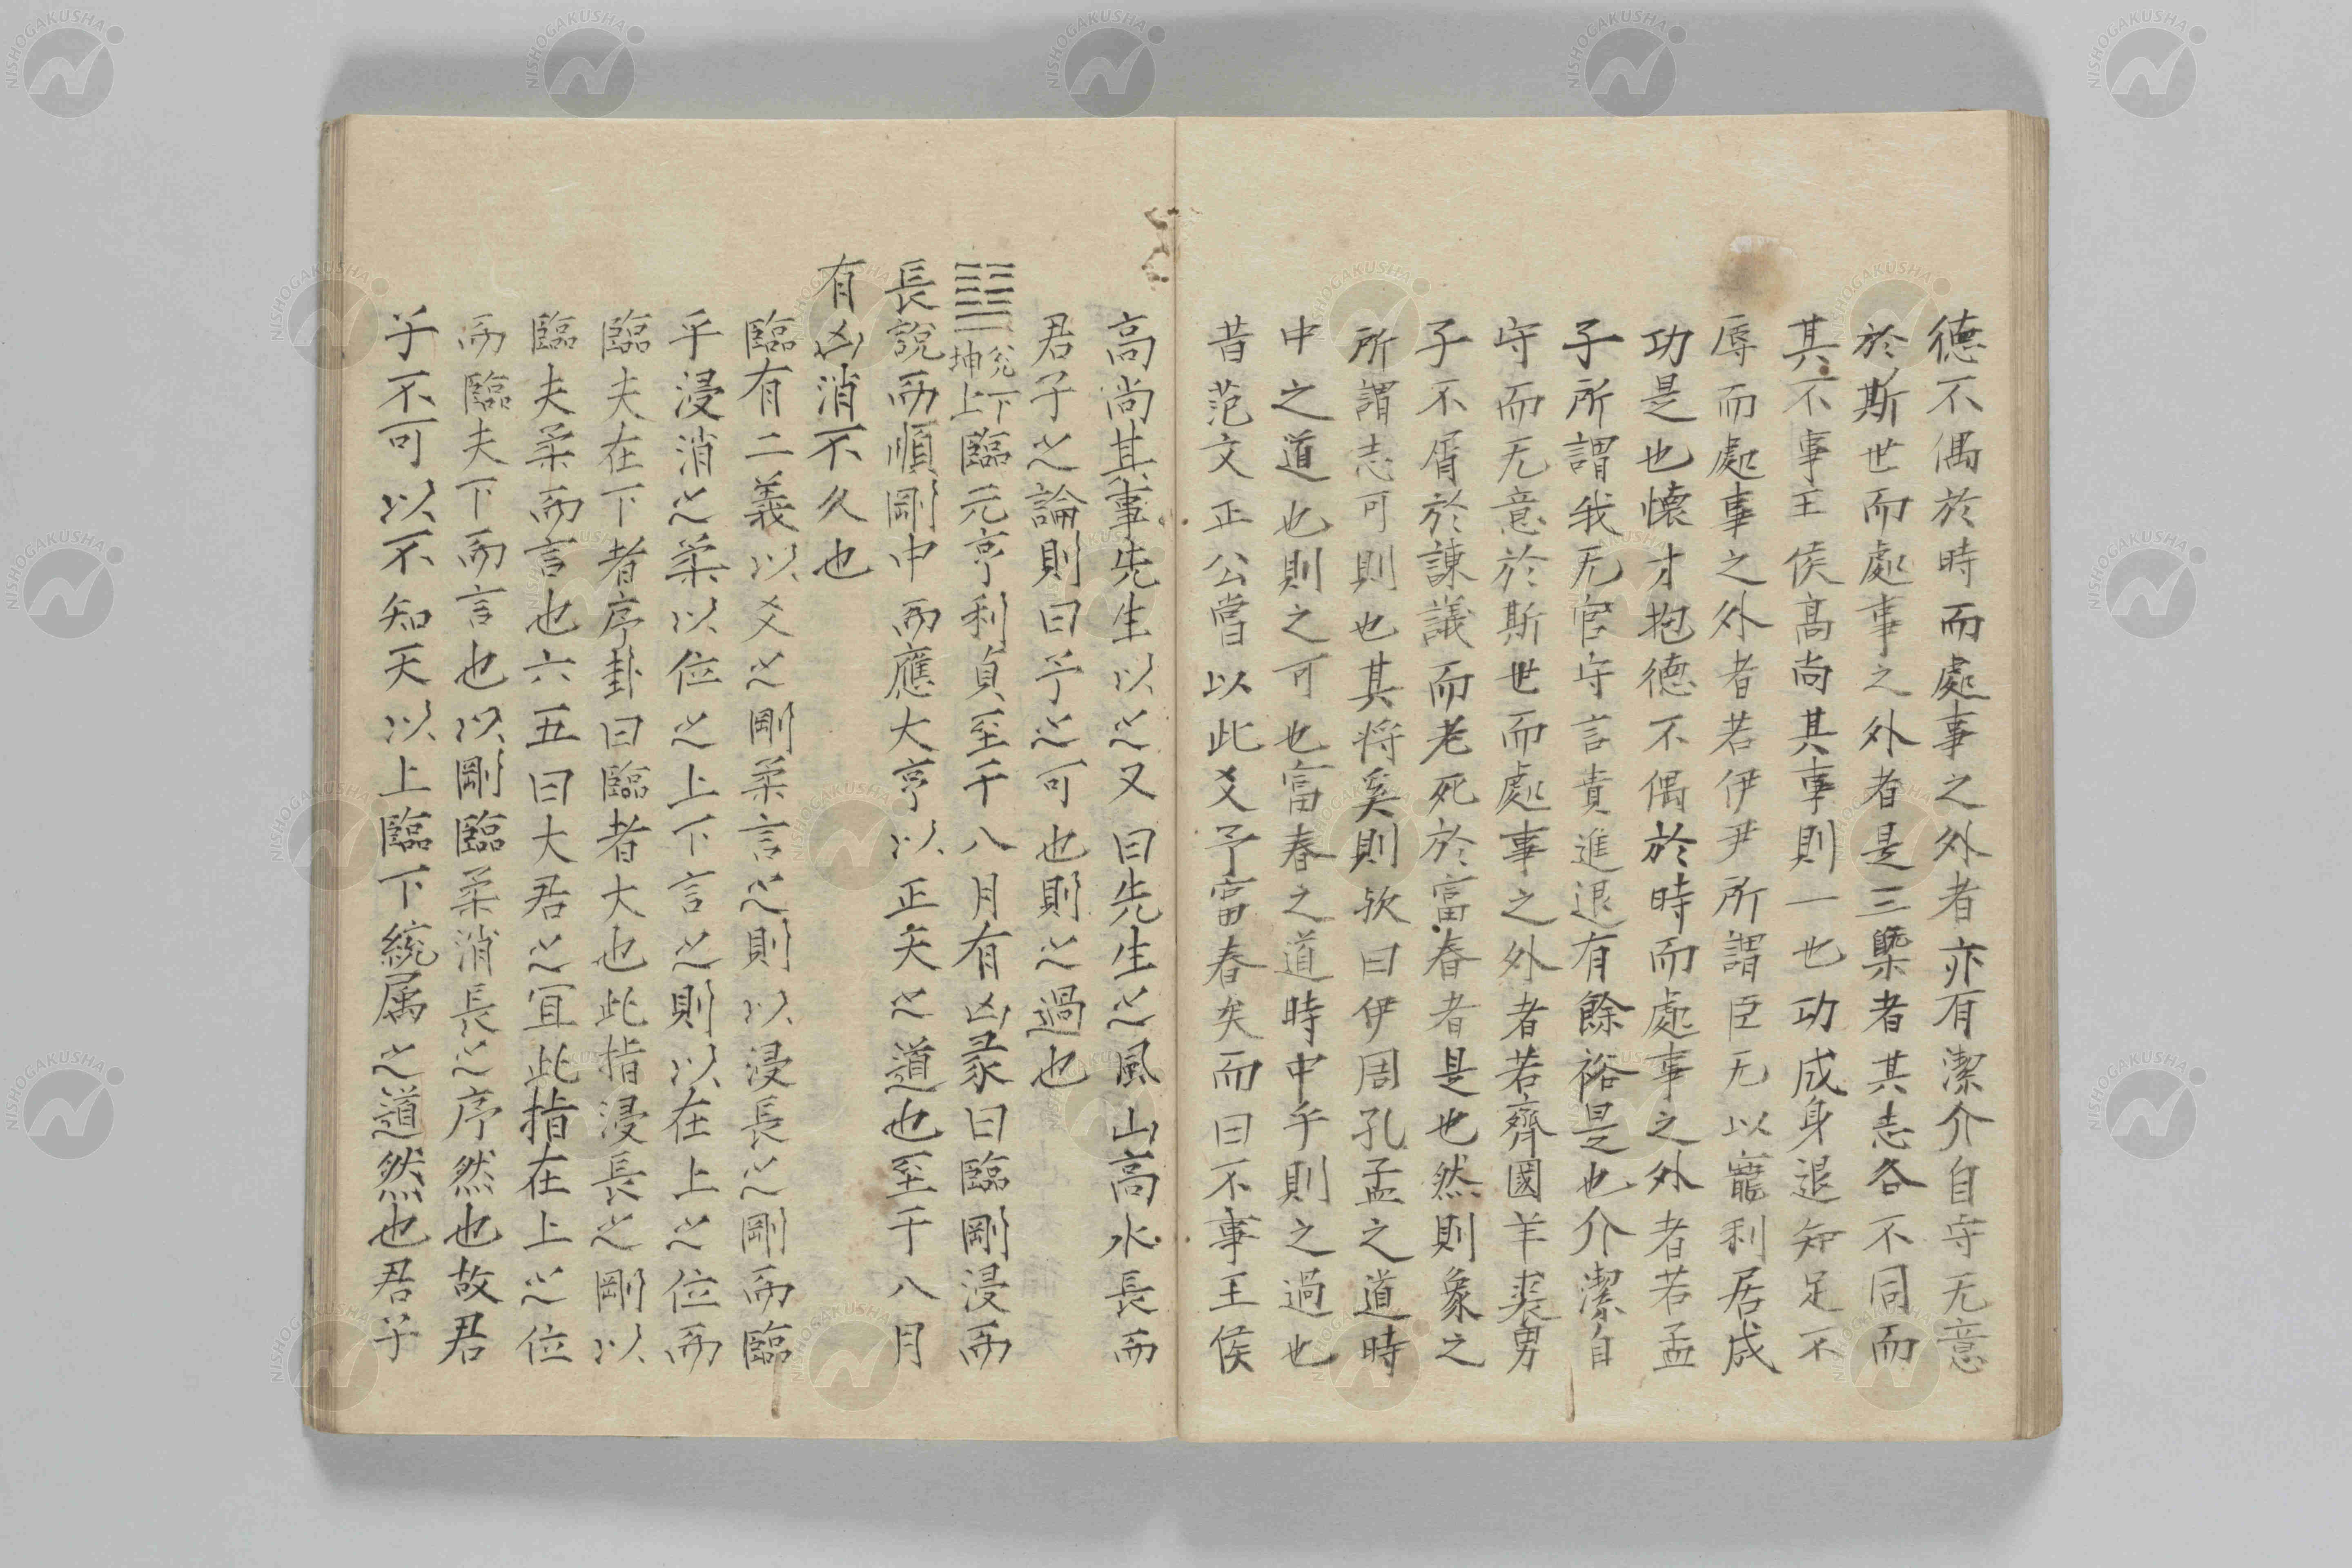 德不偶於時而處事之外者亦有潔介自守无意
於斯世而處事之外者是三槩者其志各不同而
其不事王侯髙尚其事則一也功成身退知足不
辱而處事之外者若伊尹所謂臣无以寵利居成
功是也懐才抱德不偶於時而處事之外者若孟
子所謂我无官守言責進退有餘裕是也介潔自
守而无意於斯世而處事之外者若齊國羊裘男
子不屑於諫議而老死於富春者是也然則象之
所謂志可則也其将奚則欤曰伊周孔孟之道時
中之道也則之可也富春之道時中乎則之過也
昔范文正公嘗以此爻予富春矣而曰不事王侯
高尚其事先生以之又曰先生之風山高水長而
君子之論則曰予之可也則之過也
䷒兊下坤上臨元亨利貞至于八月有凶彖曰臨剛浸而
長說而順剛中而應大亨以正天之道也至于八月
有凶消不久也
臨有二義以爻之剛柔言之則以浸長之剛而臨
乎浸消之柔以位之上下言之則以在上之位而
臨夫在下者序卦曰臨者大也此指浸長之剛以
臨夫柔而言也六五曰大君之宜此指在上之位
而臨夫下而言也以剛臨柔消長之序然也故君
子不可以不知天以上臨下統属之道然也君子